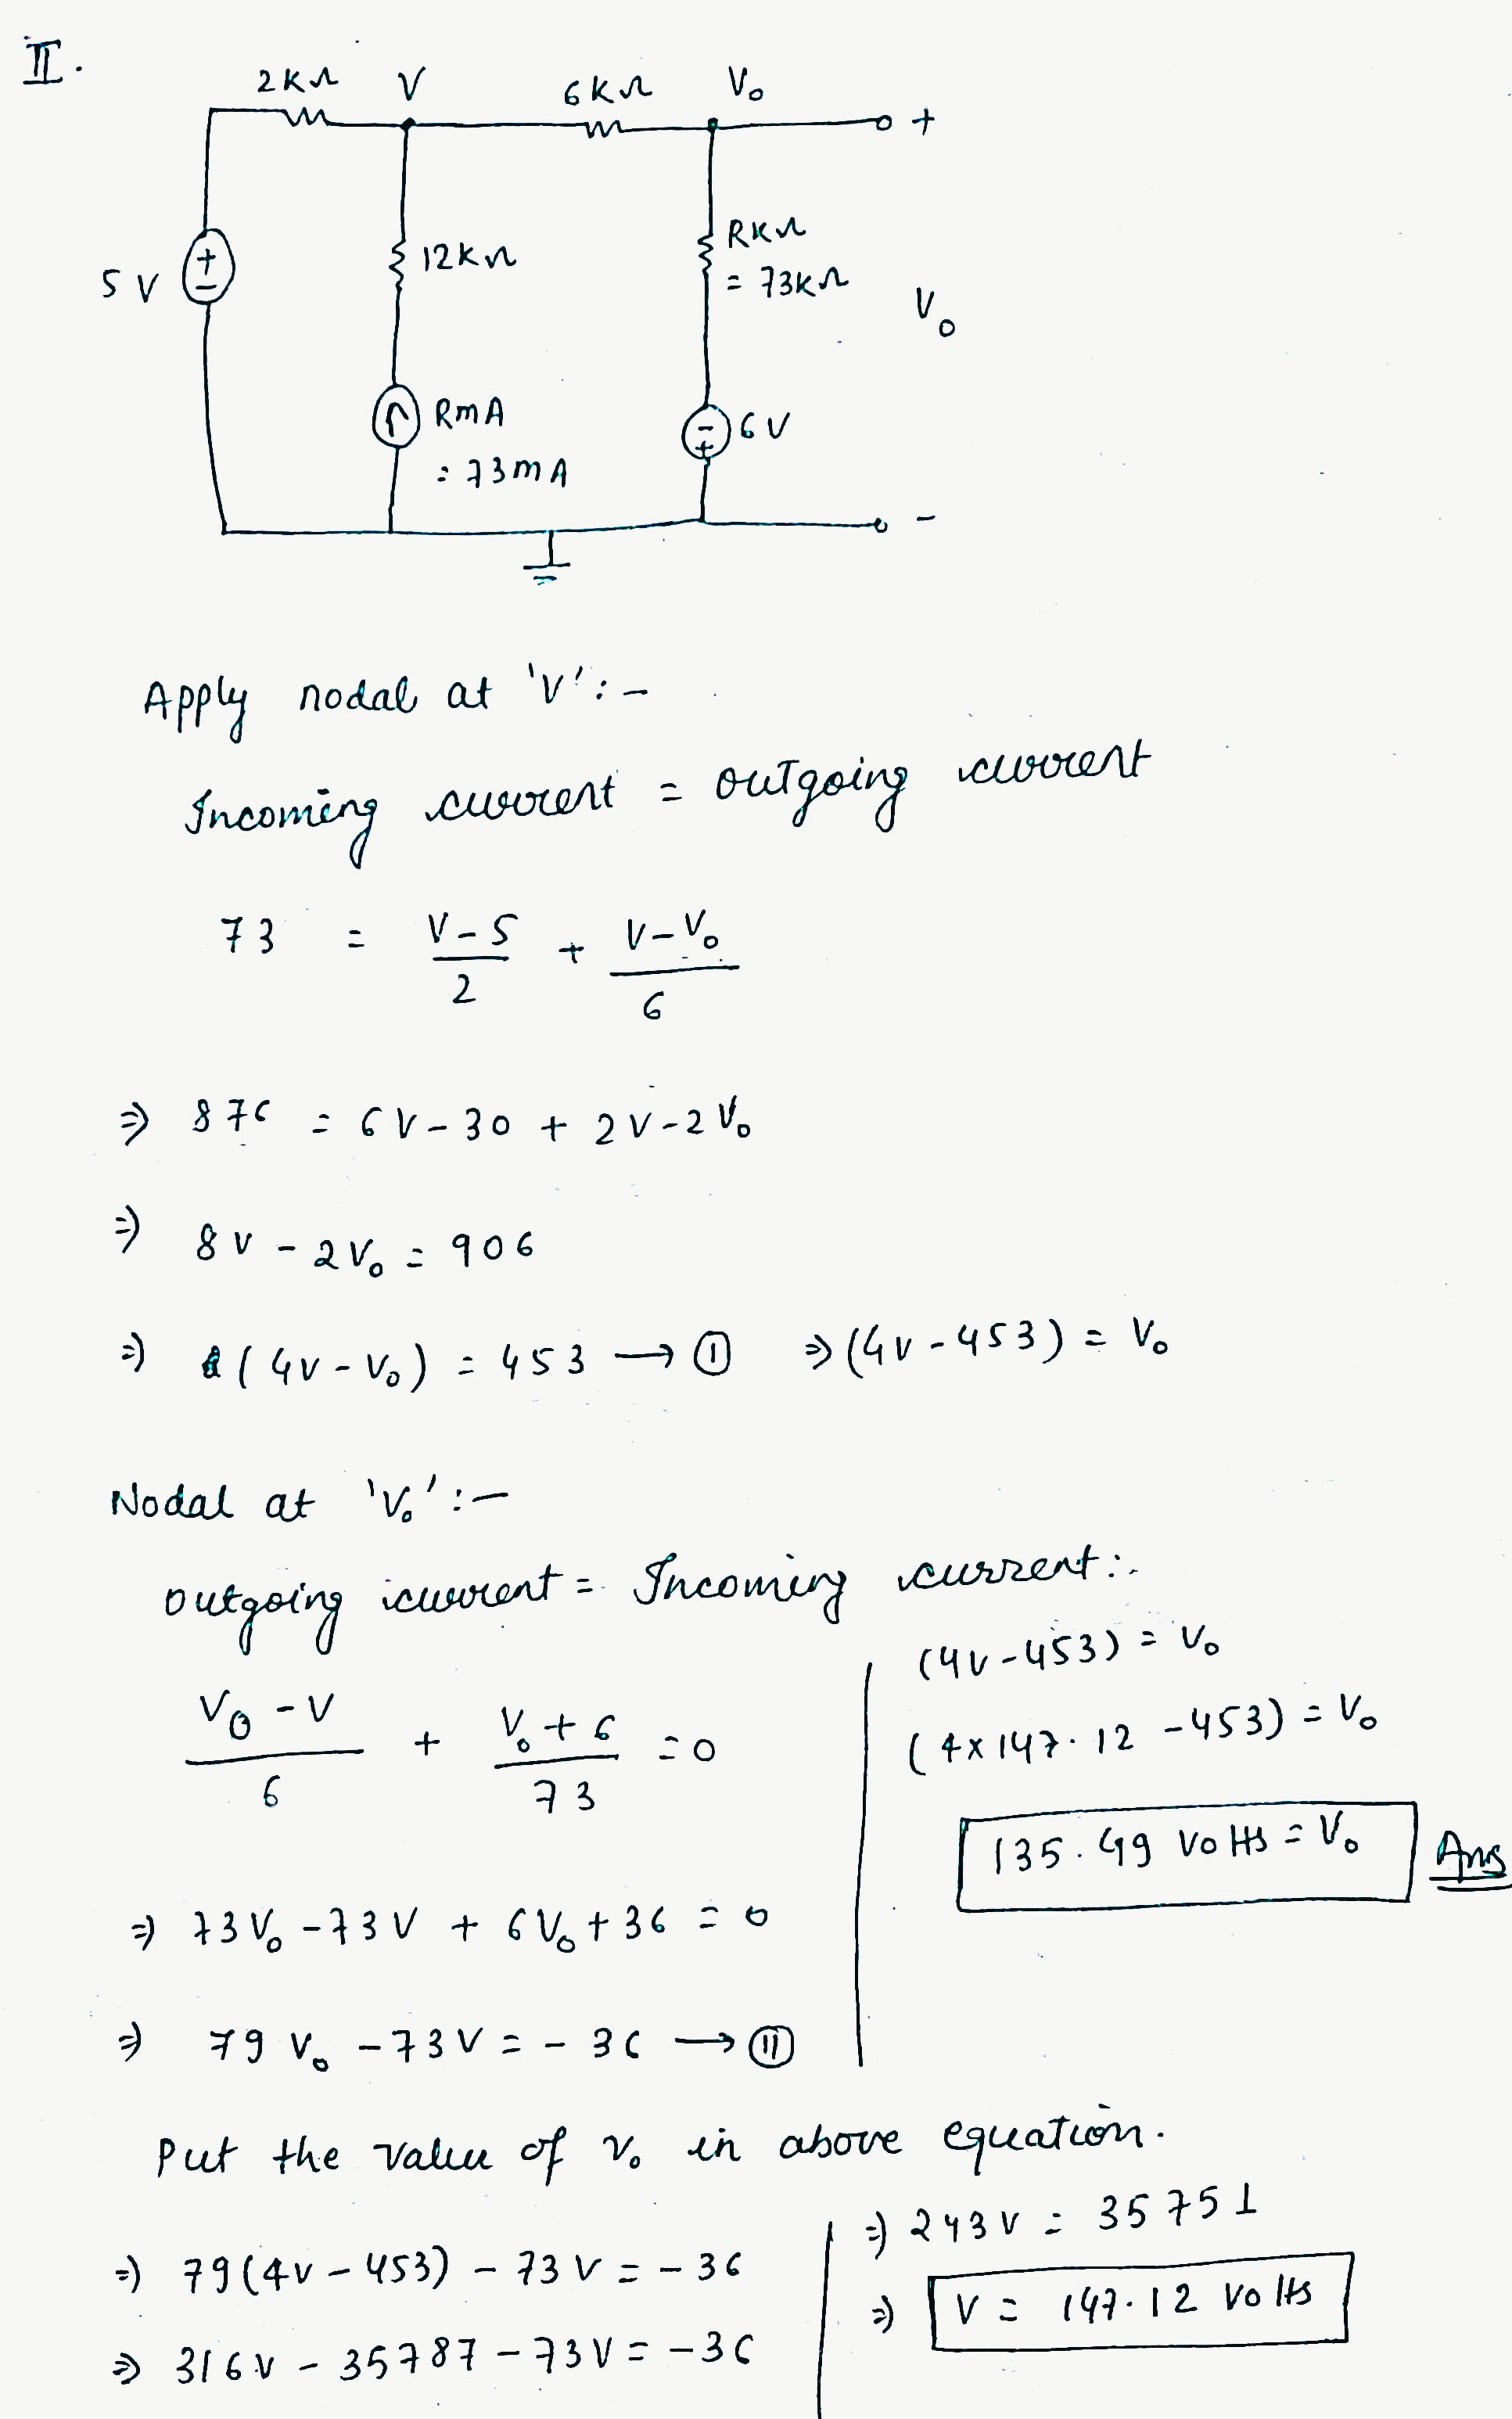 II.
2KΩ V 6KΩ Vo
+
5V + - 12KΩ RKΩ
= 73KΩ Vo
RmA - + 6V
= 73mA
-
Apply nodal at 'V':-
Incoming current = outgoing current
73 = (V-5)/2 + (V-Vo)/6
⇒ 876 = 6V-30 + 2V-2Vo
⇒ 8V - 2Vo = 906
⇒ (4V-Vo) = 453 → ① ⇒ (4V-453) = Vo
Nodal at 'Vo':-
outgoing current = Incoming current:-
(Vo-V)/6 + (Vo+6)/73 = 0
⇒ 73Vo - 73V + 6Vo + 36 = 0
⇒ 79Vo - 73V = -36 → ⑪
(4V-453) = Vo
(4x147.12 -453) = Vo
135.49 Volts = Vo Ans
Put the value of Vo in above equation.
⇒ 79(4V-453) - 73V = -36
⇒ 316V - 35787 - 73V = -36
⇒ 243V = 35751
⇒ V = 147.12 Volts